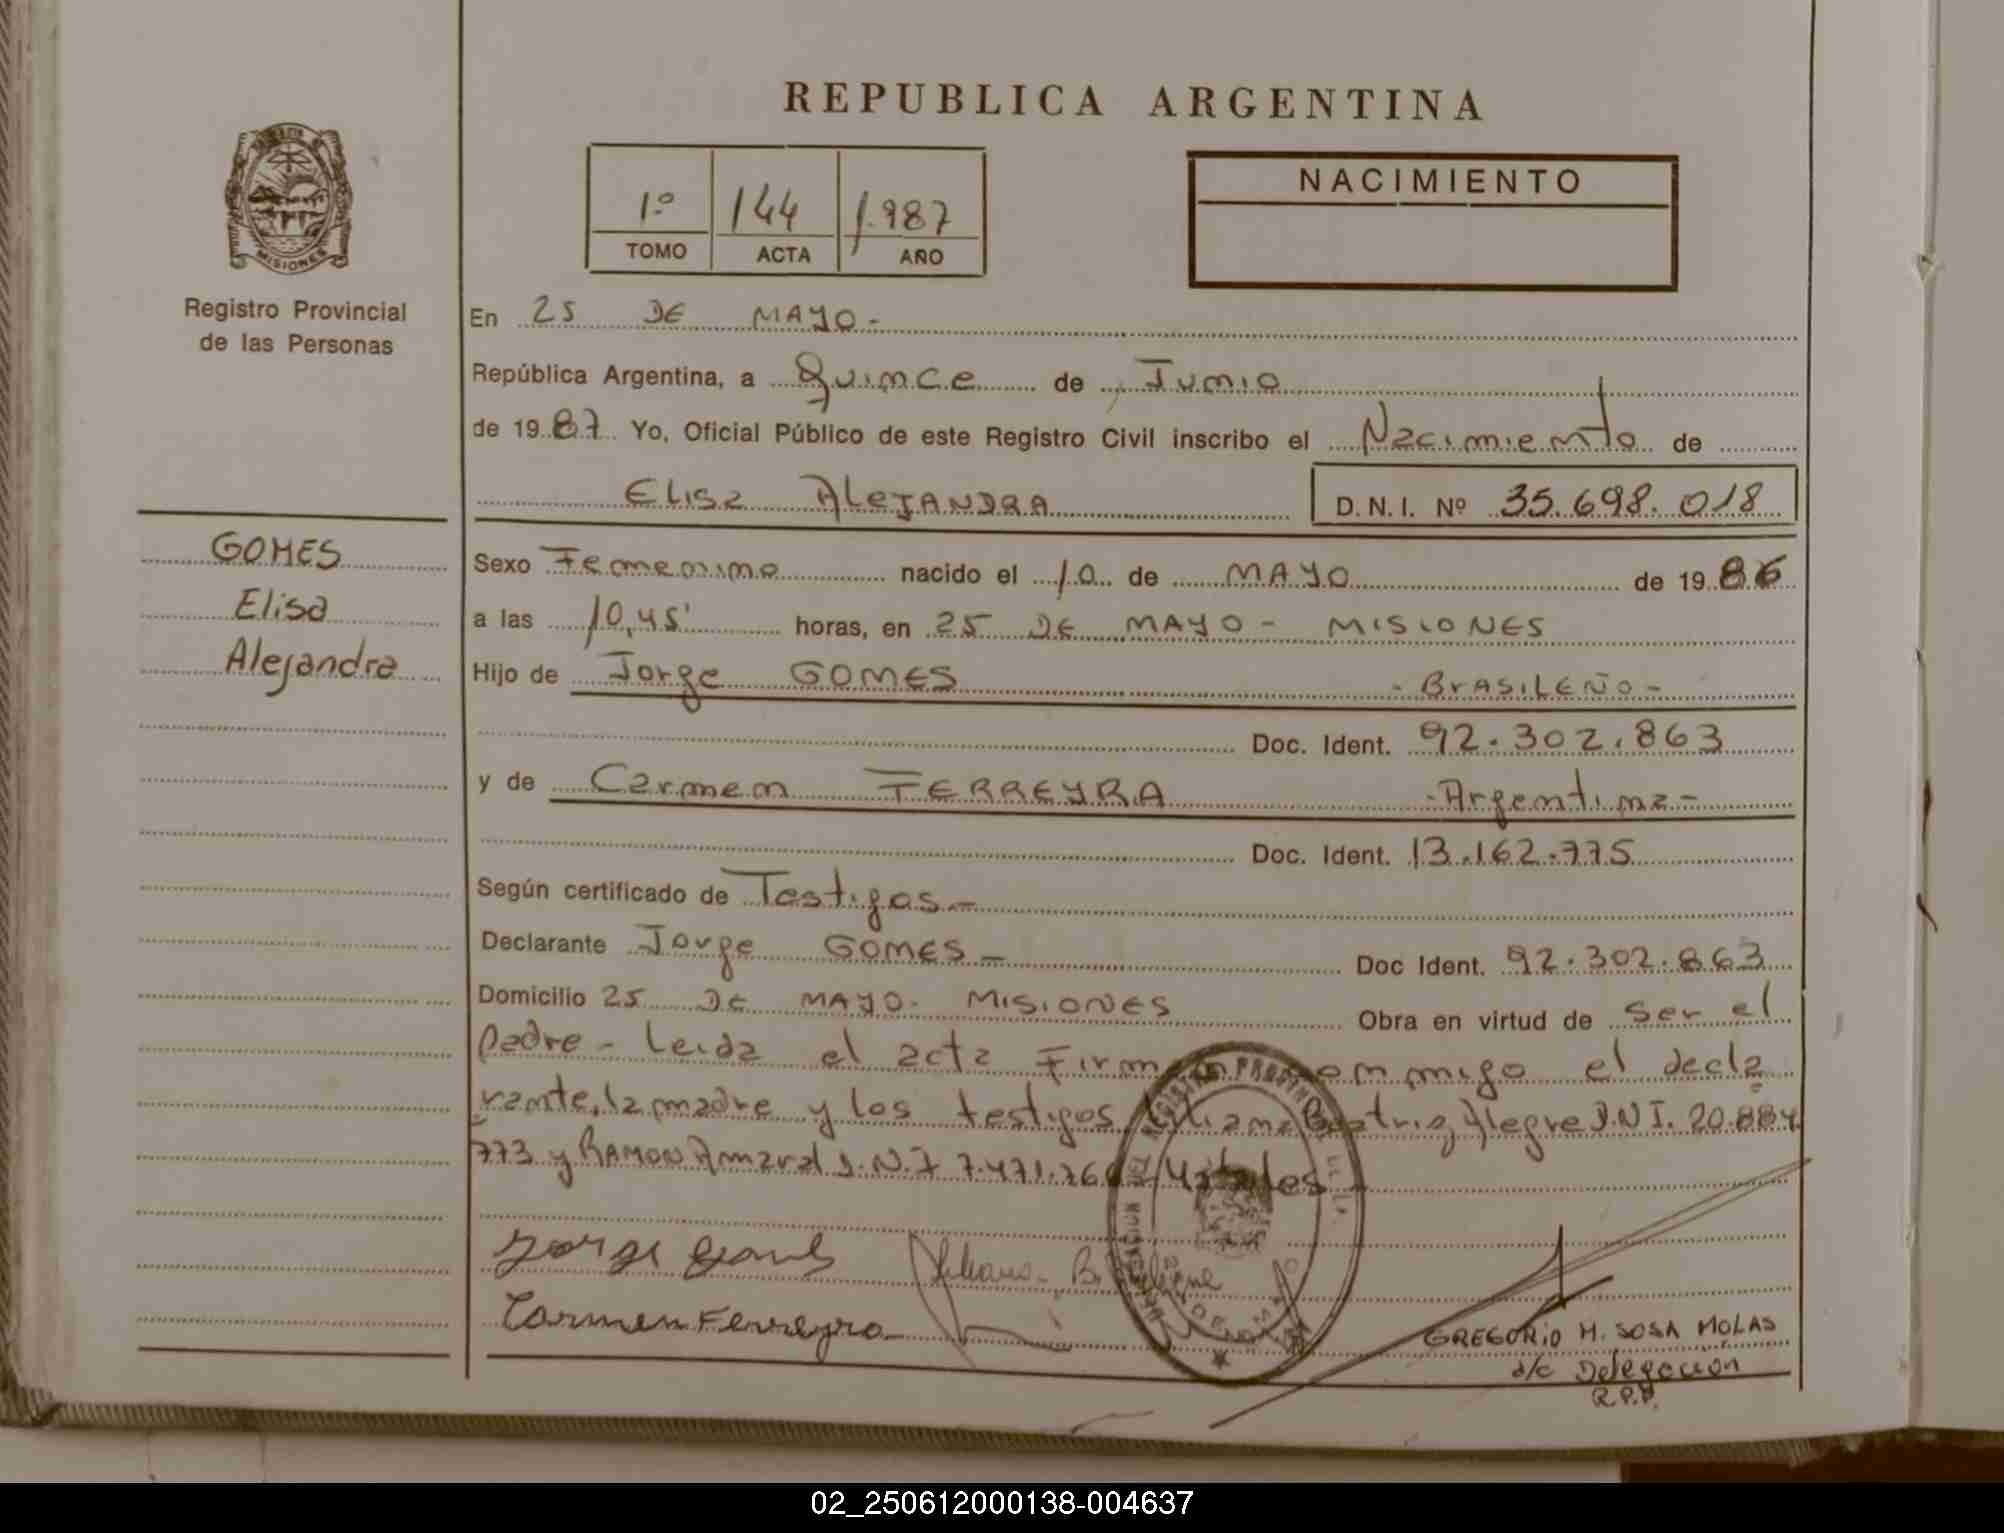 REPUBLICA ARGENTINA
1º 144 1.987
TOMO ACTA AÑO
NACIMIENTO
MISIONES
Registro Provincial
de las Personas
En 25 DE MAYO-
República Argentina, a Quince de Junio
de 1987 Yo, Oficial Público de este Registro Civil inscribo el Nacimiento de
Elisa ALEJANDRA D.N.I. Nº 35.698.018
GOMES
Elisa
Alejandra
Sexo Femenino nacido el 10 de MAYO de 1986
a las 10,45' horas, en 25 DE MAYO- MISIONES
Hijo de Jorge GOMES - BrASILEÑO-
Doc. Ident. 92.302.863
y de Carmen FERREYRA -Argentina-
Doc. Ident. 13.162.775
Según certificado de Testigos-
Declarante Jorge GOMES- Doc Ident. 92.302.863
Domicilio 25 DE MAYO- MISIONES Obra en virtud de ser el
padre- Leida el acta Firman conmigo el decla
rante, la madre y los testigos Liliana Beatriz Alegre D.N.I. 20.884.
773 y RAMON Amaral D.N.I 7.471.76
Jorge Gomes
Carmen Ferreyra
GREGORIO M. SOSA MOLAS
a/c Delegacion
R.P.P.
02_250612000138-004637